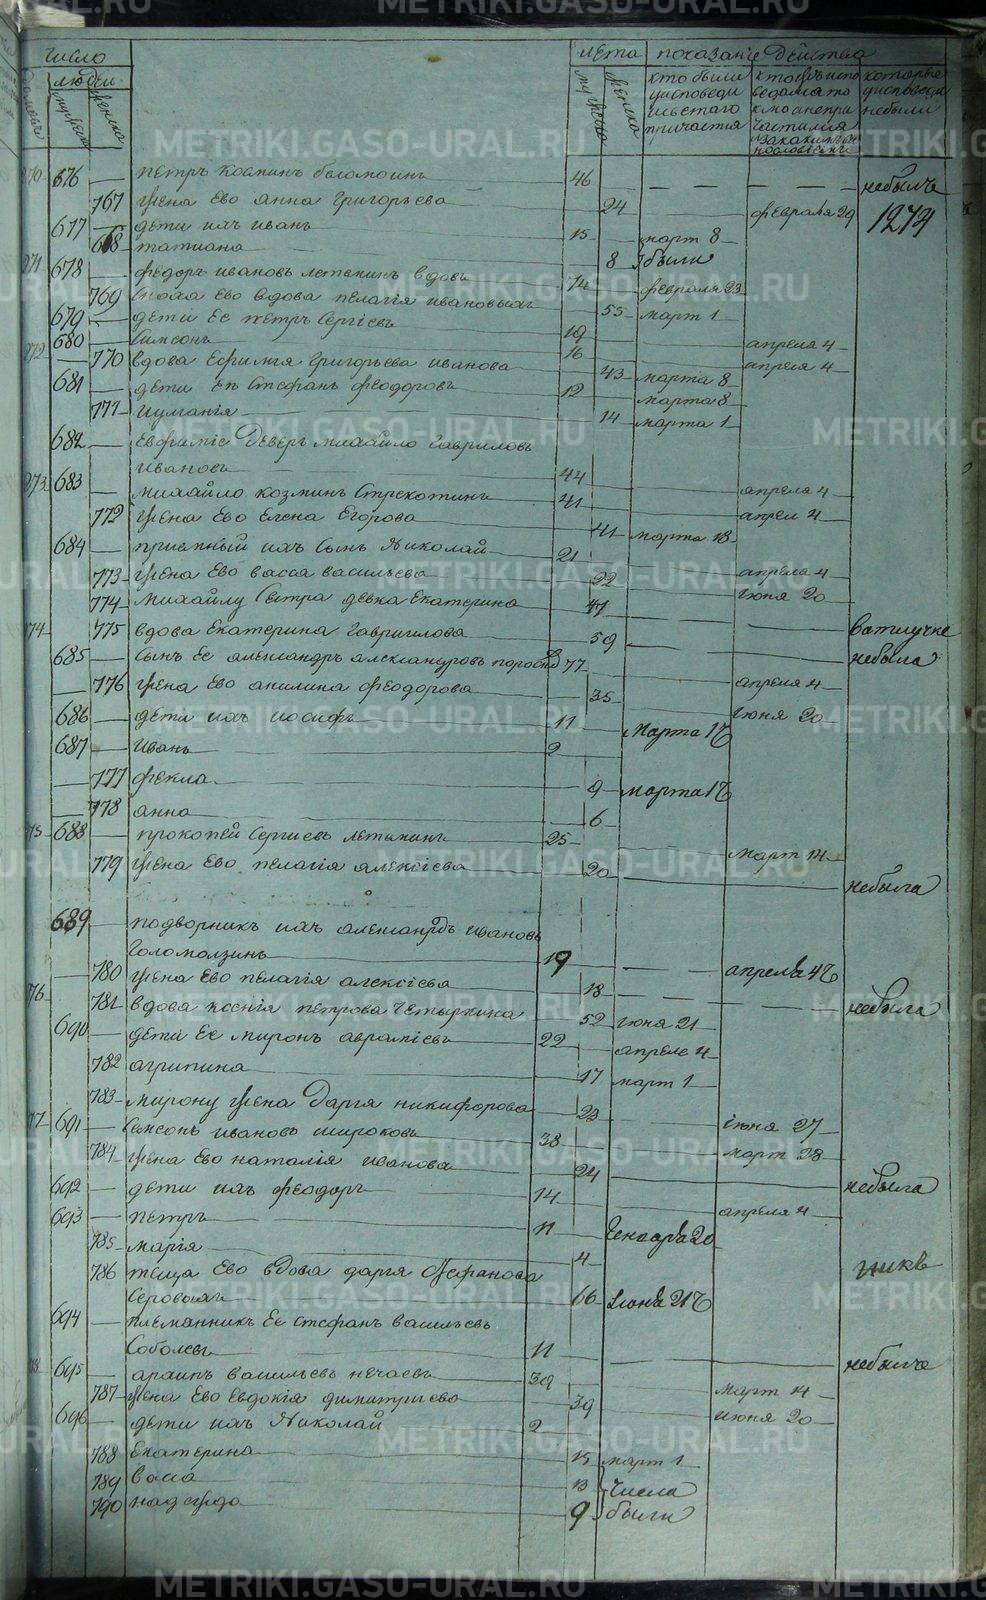 число лета показание действа
людей
домовъ мужеска женска мужеска женска
кто были уисповеди и святаго причастия
которые уисповеди небыли
270 676 — петръ козминъ 46 — — — небылъ
767 жена ево анна григорьева 24 февраля 29 1274
677 — дети ихъ иванъ 15 март 8
668 татиана 8 были
271 678 — федоръ ивановъ летенинъ вдовъ 74 февраля 23
769 сноха ево вдова пелагія ивановыхъ 55 март 1
679 — дети ее петръ сергіевъ 19 апреля 4
680 — симеонъ 16 апреля 4
272 770 вдова ефимія григорьева иванова 43 марта 8
681 — дети ея стефанъ феодоровъ 12 марта 8
771 иуланія 14 марта 1
682 — евфиміе деверь михайло гавриловъ
ивановъ 44 апреля 4
273 683 — михайло козминъ стрекотинъ 41 апрел 4
772 жена ево елена егорова 41 марта 18
684 — приемный ихъ сынъ николай 21 апреля 4
773 жена ево васса васильева 22 июня 20
774 михайлу сестра девка екатерина 47 вотлучке
274 775 вдова екатерина гаврилова 59 небыла
685 — сынъ ее александръ александровъ 77 апреля 4
776 жена ево акилина феодорова 35 июня 20
686 — дети ихъ иосифъ 11 марта 17
687 — иванъ 2
777 фекла 9 марта 17
778 анна 6
275 688 — прокопей сергиевъ летенинъ 25 март 14
779 жена ево пелагія алексіева 20 небыла
689 — подворникъ ихъ александръ ивановъ
голомолзинъ 19 — — апреля 4
780 жена ево пелагія алексіева 18 небыла
276 781 вдова ксенія петрова четыркина 52 июня 21
690 — дети ее миронъ аврамиевъ 22 апреле 4
782 агрипина 17 март 1
783 мирону жена дарья никифорова 23 июня 27
277 691 — самсонъ ивановъ широковъ 38 март 28
784 жена ево наталія иванова 24 небыла
692 — дети ихъ феодоръ 14 апреля 4
693 — петръ 11 генваря 20
785 марія 4
786 теща ево вдова дарья стефанова
серовыхъ 66 июня 21
694 — племянникъ ее стефанъ васильевъ
соболевъ 11 небылъ
278 695 — архипъ васильевъ нечаевъ 39 март 14
787 жена ево евдокія димитриева 39 июня 20
696 — дети ихъ николай 2
788 екатерина 15 март 1
789 васса 13 числа
790 надежда 9 были
METRIKI.GASO-URAL.RU